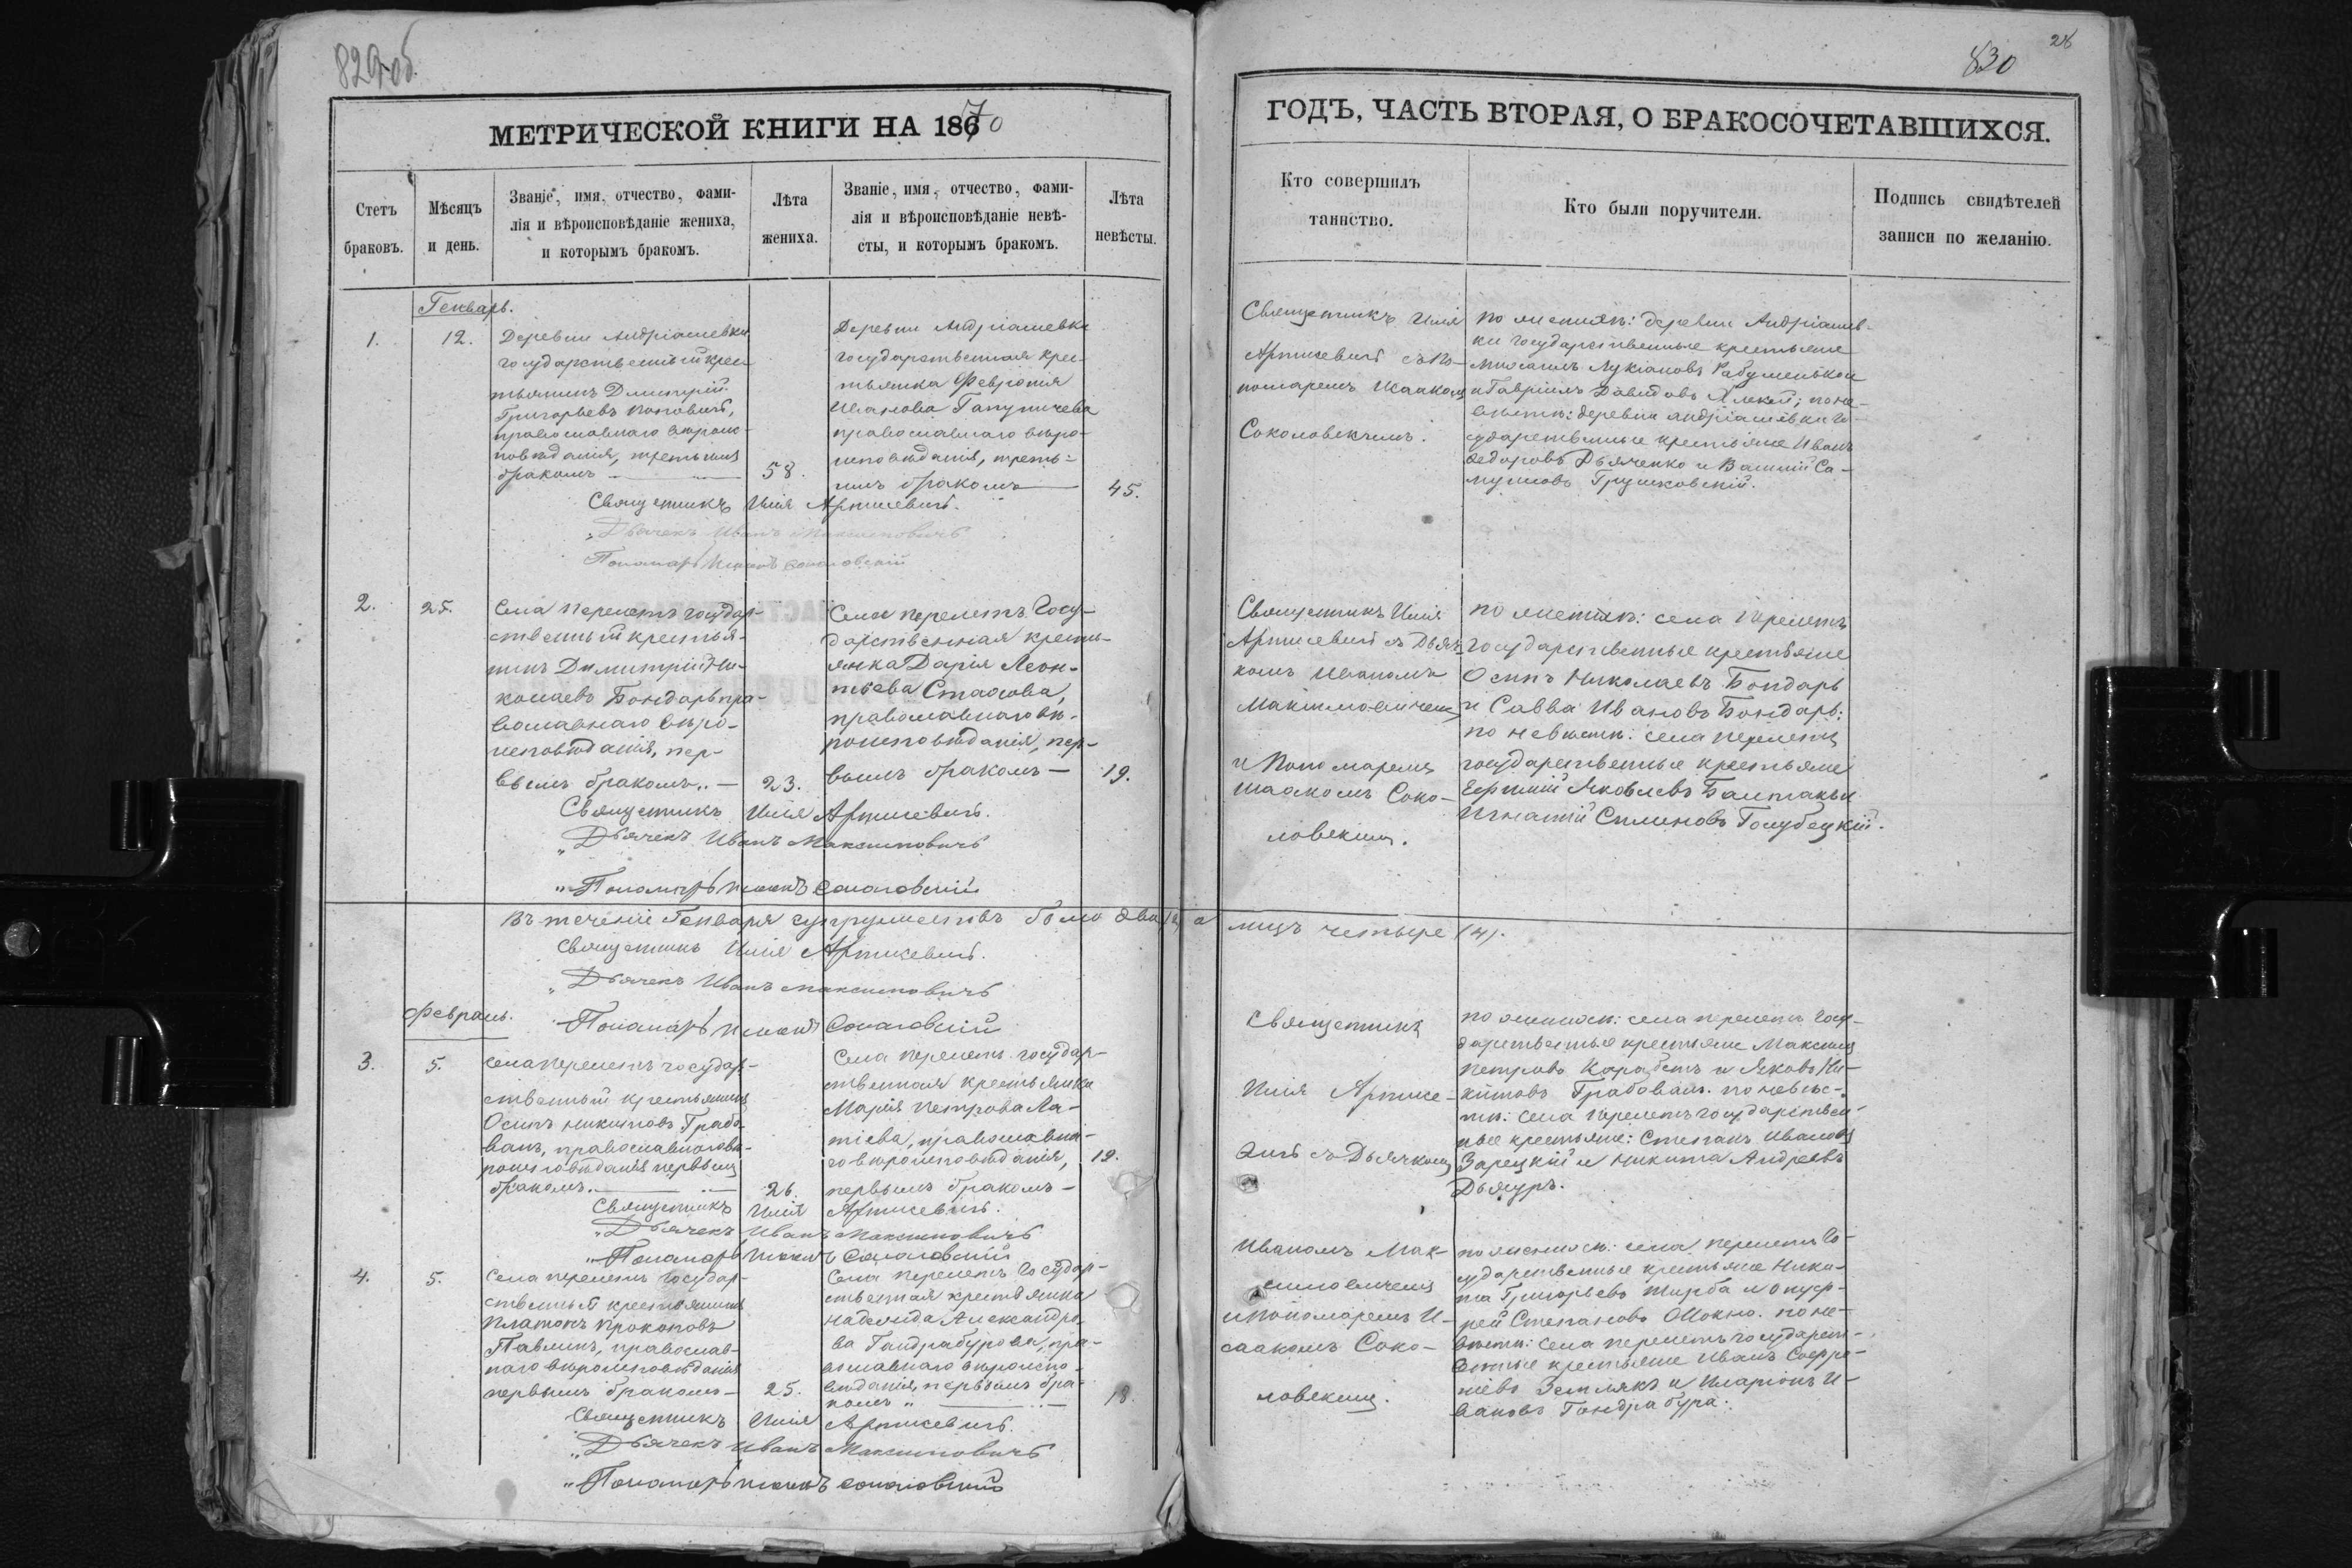 829 об.
МЕТРИЧЕСКОЙ КНИГИ НА 1870
Счетъ
браковъ.
Мѣсяцъ
и день.
Званіе, имя, отчество, фами-
лія и вѣроисповѣданіе жениха,
и которымъ бракомъ.
Лѣта
жениха.
Званіе, имя, отчество, фами-
лія и вѣроисповѣданіе невѣ-
сты, и которымъ бракомъ.
Лѣта
невѣсты.
Генварь.
1.
12.
Деревни Андріашевки
государственный крес
тьянинъ Димитрій
Григорьевъ Поповичъ,
православнаго вѣроис-
повѣданія, третьимъ
бракомъ
58.
Деревни Андріашевки
государственная крес-
тьянка Февронія
Иванова
православнаго вѣро-
исповѣданія, треть-
имъ бракомъ
45.
Священникъ Илія Артисевичъ.
Дьячекъ Иванъ Максимовичъ
Пономарь Исаакъ Соколовскій
2.
25.
Села Перелетъ государ-
ственный крестья-
нинъ Димитрій Ни-
колаевъ Бондарь пра-
вославнаго вѣро-
исповѣданія, пер-
вымъ бракомъ
23.
Села Перелетъ Госу-
дарственная кресть-
янка Дарія Леон-
тьева
православнаго вѣ-
роисповѣданія, пер-
вымъ бракомъ
19.
Священникъ Илія Артисевичъ.
Дьячекъ Иванъ Максимовичъ
Пономарь Исаакъ Соколовскій
Въ теченіе Генваря супружествъ было два (2) а лицъ четыре (4).
Священникъ Илія Артисевичъ.
Дьячекъ Иванъ Максимовичъ
Пономарь Исаакъ Соколовскій
Февраль.
3.
5.
Села Перелетъ государ-
ственный крестьянинъ
Осипъ Никитовъ Грабо-
ванъ, православнаго вѣ-
роисповѣданія первымъ
бракомъ.
26.
Села Перелетъ государ-
ственная крестьянка
Марія Петрова Ла-
тіева, православна-
го вѣроисповѣданія,
первымъ бракомъ
19.
Священникъ Илія Артисевичъ.
Дьячекъ Иванъ Максимовичъ
Пономарь Исаакъ Соколовскій
4.
5.
Села Перелетъ государ-
ственный крестьянинъ
Платонъ Прокоповъ
Павлинъ, православ-
наго вѣроисповѣданія
первымъ бракомъ
25.
Села Перелетъ государ-
ственная крестьянка
Надежда Александро-
ва Гандрабурова, пра-
вославнаго вѣроиспо-
вѣданія, первымъ бра-
комъ
18.
Священникъ Илія Артисевичъ.
Дьячекъ Иванъ Максимовичъ
Пономарь Исаакъ Соколовскій
28
830
ГОДЪ, ЧАСТЬ ВТОРАЯ, О БРАКОСОЧЕТАВШИХСЯ.
Кто совершилъ
таинство.
Кто были поручители.
Подпись свидѣтелей
записи по желанію.
Священникъ Илія
Артисевичъ съ По-
номаремъ Исаакомъ
Соколовскимъ.
по женихѣ: деревни Андріашев-
ки государственные крестьяне
Лукіановъ
и Гавріилъ Давидовъ по не-
вѣстѣ: деревни Андріашевки го-
сударственные крестьяне Иванъ
Ѳедоровъ Дьяченко и Василій Са-
муиловъ Грушковскій.
Священникъ Илія
Артисевичъ съ Дьяч-
комъ Иваномъ
Максимовичемъ
и Пономаремъ
Исаакомъ Соко-
ловскимъ.
по женихѣ: села Перелетъ
государственные крестьяне
Осипъ Николаевъ Бондарь
и Савва Ивановъ Бондарь;
по невѣстѣ: села Перелетъ
государственные крестьяне
Яковлевъ
Игнатій Голубецкій.
Священникъ
Илія Артисе-
вичъ съ Дьячкомъ
Иваномъ Мак-
симовичемъ
и Пономаремъ И-
саакомъ Соко-
ловскимъ.
по женихѣ: села Перелетъ госу-
дарственные крестьяне Максимъ
Петровъ и Яковъ Ни-
китовъ Грабованъ. по невѣс-
тѣ: села Перелетъ государствен-
ные крестьяне: Степанъ Ивановъ
Зарецкій и Никита Андреевъ
Дьяуръ.
по женихѣ: села Перелетъ го-
сударственные крестьяне Ники-
та Григорьевъ и Онуф-
рей Степановъ по не-
вѣстѣ: села Перелетъ государст-
венные крестьяне Иванъ Софро-
ніевъ Землякъ и Иларіонъ И-
вановъ Гандрабура.